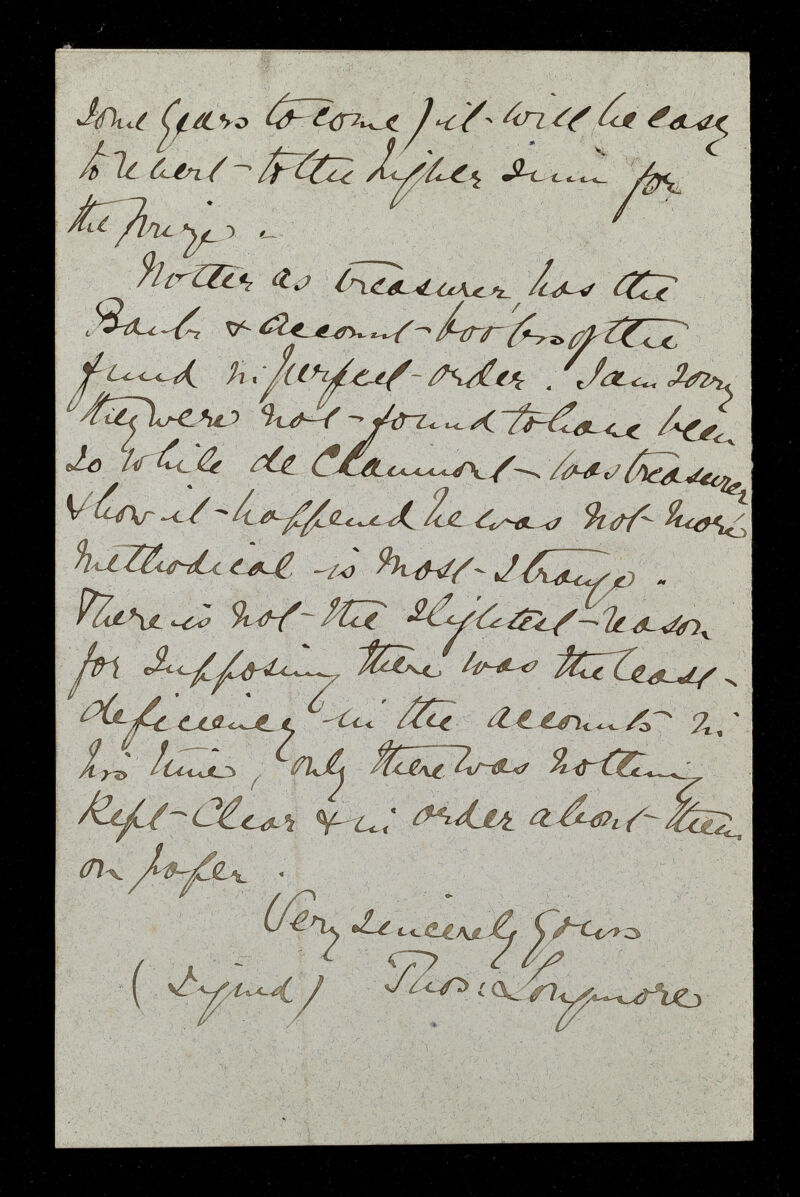 some years to come) it will be easy
to revert to the higher sum for
the prize.
Notter as treasurer, has the
Bank & Account-books of the
fund in perfect order. I am sorry
they were not found to have been
so while de Chaumont was treasurer
& how it happened he was not more
methodical is most strange.
There is not the slightest reason
for supposing there was the least
deficiency in the accounts in
his time, only there was nothing
kept clear & in order about them
on paper.
Very sincerely yours
(signed) Thos: Longmore